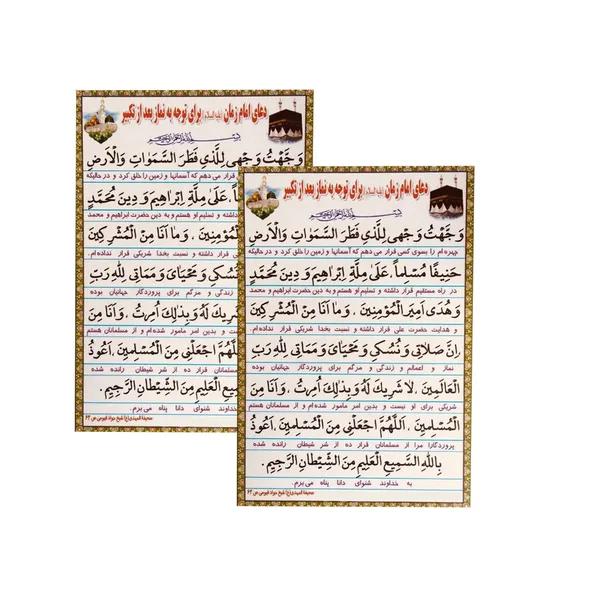 دعای امام زمان (علیه السلام) برای توجه به نماز بعد از تکبیر
وَجَّهْتُ وَجْهِی لِلَّذِی فَطَرَ السَّمٰوَاتِ وَالْاَرْضِ
چهره ام را بسوی کسی قرار می دهم که آسمانها و زمین را خلق کرد و در حالیکه
حَنِیفًا مُسْلِمًا. عَلیٰ مِلَّةِ اِبْرَاهِیمَ وَ دِینِ مُحَمَّدٍ
در راه مستقیم قرار داشته و تسلیم او هستم و به دین حضرت ابراهیم و محمد
وَ هُدیٰ اَمِیرِ الْمُؤْمِنِینَ. وَ مَا اَنَا مِنَ الْمُشْرِکِینَ
و هدایت حضرت علی قرار داشته و نسبت بخدا شریکی قرار نداده ام.
اِنَّ صَلَاتِی وَ نُسُکِی وَ مَحْیَایَ وَ مَمَاتِی لِلّٰهِ رَبِّ
نماز و اعمالم و زندگی و مرگم برای پروردگار جهانیان بوده
الْعَالَمِینَ. لَا شَرِیکَ لَهُ وَ بِذٰلِکَ اُمِرْتُ. وَ اَنَا مِنَ
شریکی برای او نیست و بدین امر مامور شده ام و از مسلمانان هستم
الْمُسْلِمِینَ. اَللّٰهُمَّ اجْعَلْنِی مِنَ الْمُسْلِمِینَ. اَعُوذُ
پروردگارا مرا از مسلمانان قرار ده از شر شیطان رانده شده
بِاللهِ السَّمِیعِ الْعَلِیمِ مِنَ الشَّیْطَانِ الرَّجِیمِ.
به خداوند شنوای دانا پناه می برم.